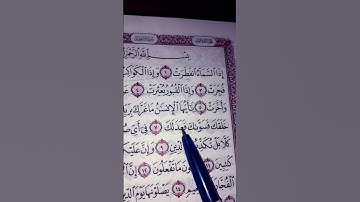 بِسْمِ ٱللَّهِ ٱلرَّحْمَٰنِ
إِذَا ٱلسَّمَآءُ ٱنفَطَرَتْ ١ وَإِذَا ٱلْكَوَاكِبُ
فُجِّرَتْ ٣ وَإِذَا ٱلْقُبُورُ بُعْثِرَتْ ٤
وَأَخَّرَتْ ٥ يَٰٓأَيُّهَا ٱلْإِنسَٰنُ مَا غَرَّكَ بِرَبِّكَ
خَلَقَكَ فَسَوَّىٰكَ فَعَدَلَكَ ٧ فِىٓ أَىِّ
كَلَّا بَلْ تُكَذِّبُونَ بِٱلدِّينِ ٩ وَإِنَّ عَلَيْكُمْ
كَٰتِبِينَ ١١ يَعْلَمُونَ مَا تَفْعَلُونَ ١٢ إِنَّ
ٱلْفُجَّارَ ١٤ يَصْلَوْنَهَا يَوْمَ ٱلدِّينِ ١٥